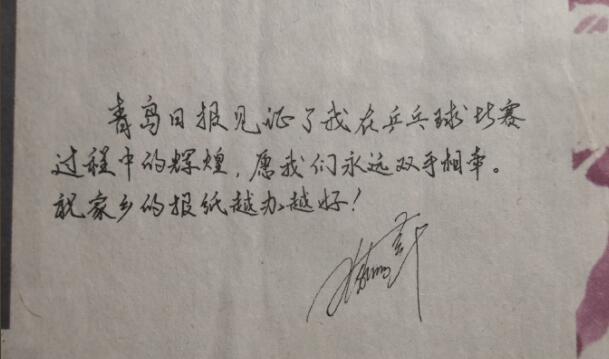 青岛日报见证了我在乒乓球比赛
过程中的辉煌，愿我们永远双手相牵。
祝家乡的报纸越办越好！